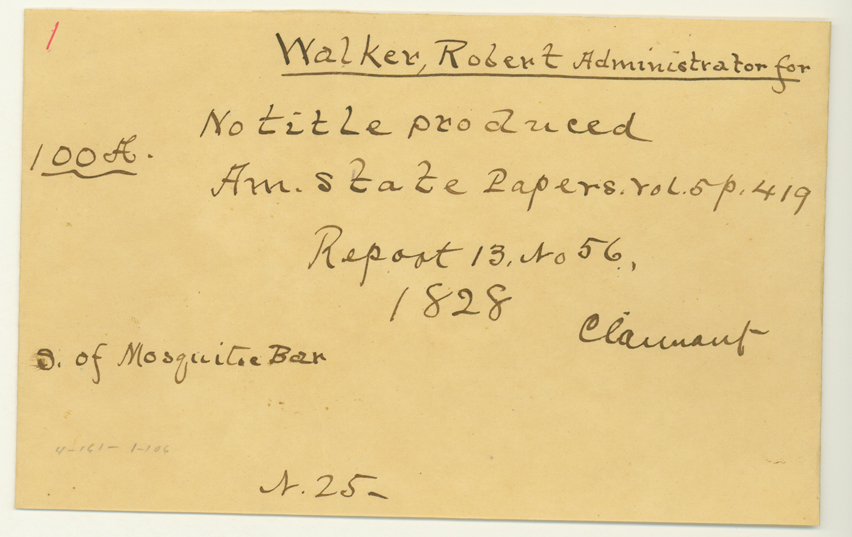 1
Walker, Robert Administrator for
No title produced
100 A.
Am. State Papers. Vol. 5 p. 419
Report 13, No 56,
1828
Claimant
S. of Mosquitoe Bar
N. 25-